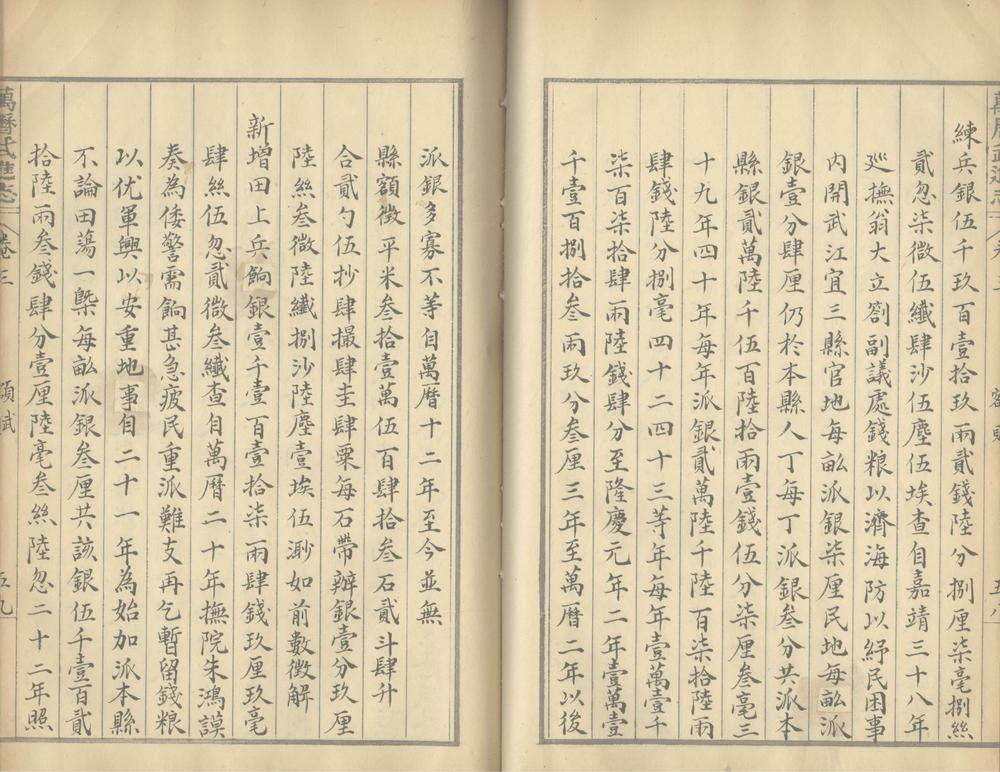 練兵銀伍千玖百壹拾玖兩貳錢陸分捌厘柒毫捌絲
貳忽柒微伍纖肆沙伍塵伍埃查自嘉靖三十八年
廵撫翁大立劄副議處錢粮以濟海防以紓民困事
內開武江宜三縣官地每畝派銀柒厘民地每畝派
銀壹分肆厘仍於本縣人丁每丁派銀叁分共派本
縣銀貳萬陸千伍百陸拾兩壹錢伍分柒厘叁毫三
十九年四十年每年派銀貳萬陸千陸百柒拾陸兩
肆錢陸分捌毫四十二四十三等年每年壹萬壹千
柒百柒拾肆兩陸錢肆分至隆慶元年二年壹萬壹
千壹百捌拾叁兩玖分叁厘三年至萬曆二年以後
派銀多寡不等自萬曆十二年至今並無
縣額徵平米叁拾壹萬伍百肆拾叁石貳斗肆升
合貳勺伍抄肆撮肆圭肆粟每石帶辦銀壹分玖厘
陸絲叁微陸纖捌沙陸塵壹埃伍渺如前數徵解
新增田上兵餉銀壹千壹百壹拾柒兩肆錢玖厘玖毫
肆絲伍忽貳微叁纖查自萬曆二十年撫院朱鴻謨
奏為倭警需餉甚急疲民重派難支再乞暫留錢粮
以优軍興以安重地事自二十一年為始加派本縣
不論田蕩一槩每畝派銀叁厘共該銀伍千壹百貳
拾陸兩叁錢肆分壹厘陸毫叁絲陸忽二十二年照
萬曆武進志 卷三 額賦 五九